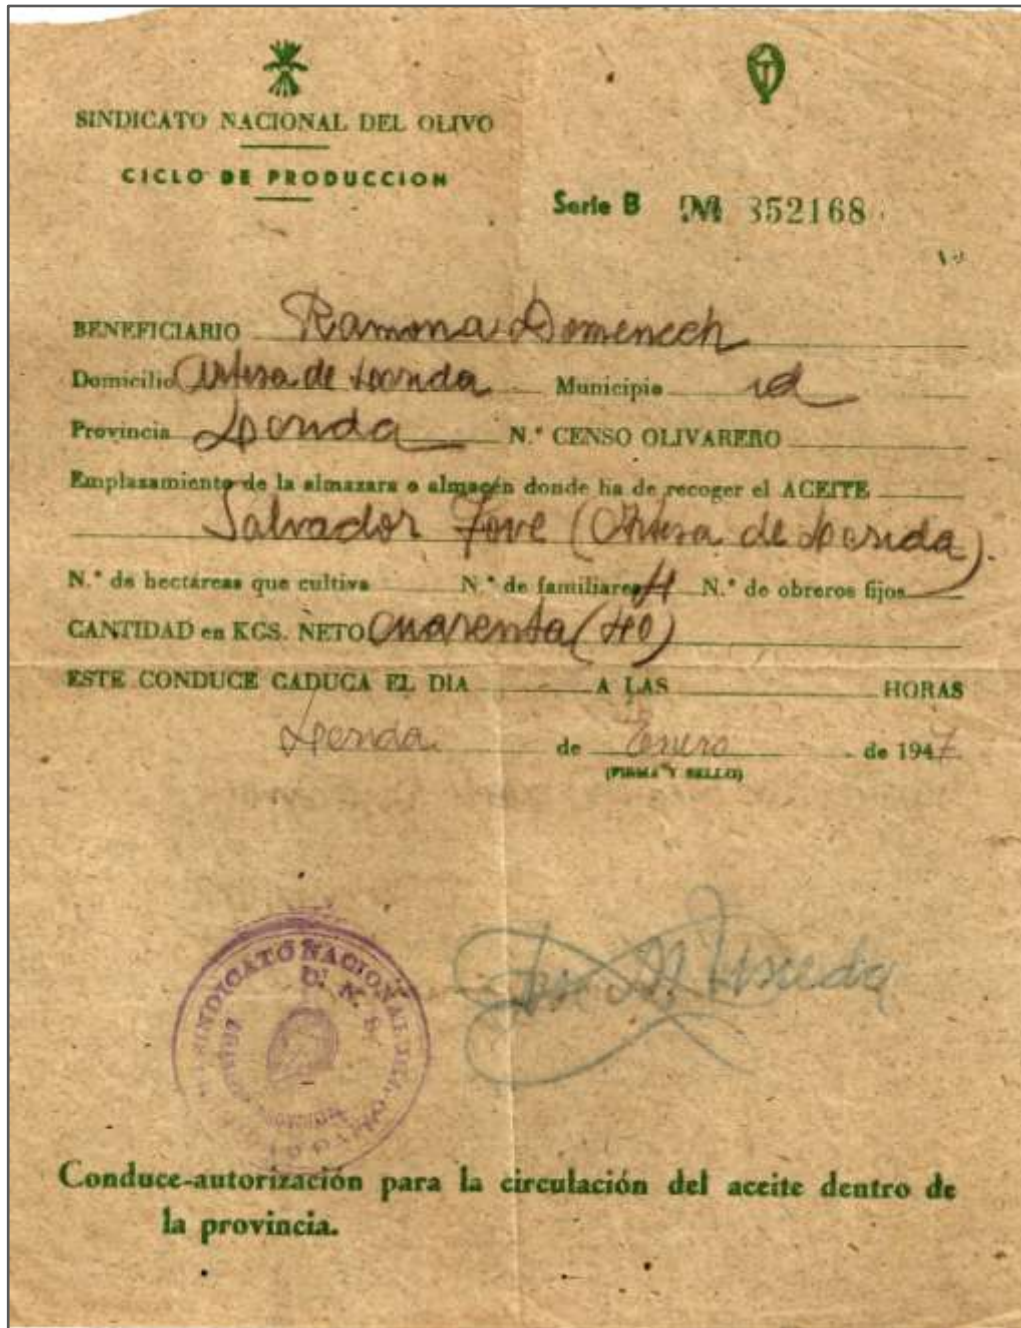 SINDICATO NACIONAL DEL OLIVO
CICLO DE PRODUCCION
Serie B 352168
BENEFICIARIO Ramona Domenech
Domicilio Artesa de Lerida Municipio id
Provincia Lerida N.° CENSO OLIVARERO
Emplazamiento de la almazara o almacén donde ha de recoger el ACEITE
Salvador Jove (Artesa de Lerida).
N.° de hectáreas que cultiva N.° de familiares 4 N.° de obreros fijos
CANTIDAD en KGS. NETO cuarenta (40)
ESTE CONDUCE CADUCA EL DIA A LAS HORAS
Lerida de Enero de 1947
(FIRMA Y SELLO)
SINDICATO NACIONAL DEL OLIVO
Conduce-autorización para la circulación del aceite dentro de
la provincia.